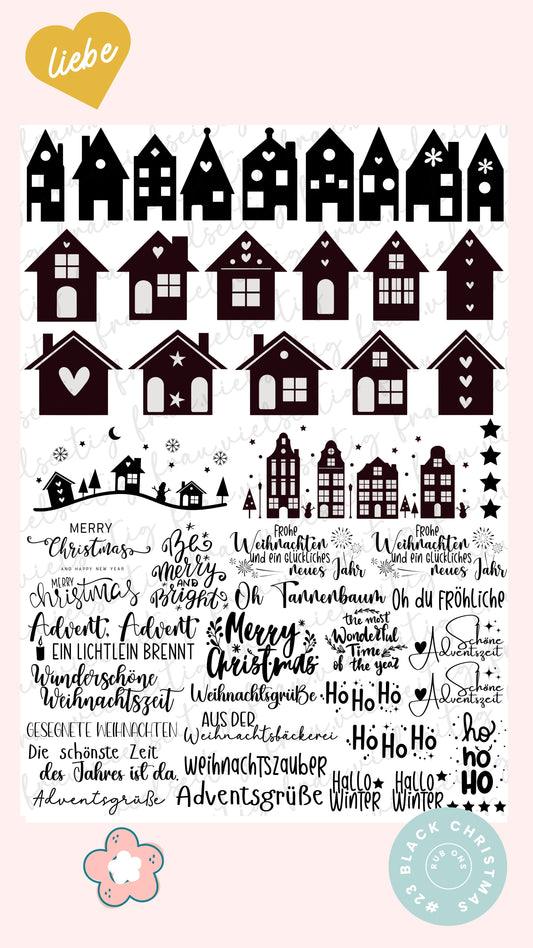 liebe
frau.vielseitig
MERRY
Christmas
AND HAPPY NEW YEAR
Be
Merry
AND
Bright
Frohe
Weihnachten
und ein glückliches
neues Jahr
Frohe
Weihnachten
und ein glückliches
neues Jahr
MERRY
christmas
Oh Tannenbaum
Oh du Fröhliche
Advent, Advent
EIN LICHTLEIN BRENNT
Merry
Christmas
the most
Wonderful
Time
of the year
Schöne
Adventszeit
Wunderschöne
Weihnachtszeit
Weihnachtsgrüße
Ho Ho Ho
Schöne
Adventszeit
GESEGNETE WEIHNACHTEN
AUS DER
Weihnachtsbäckerei
Ho Ho Ho
ho
ho
HO
Die schönste Zeit
des Jahres ist da.
Weihnachtszauber
Hallo
Winter
Hallo
Winter
Adventsgrüße
Adventsgrüße
#23 BLACK CHRISTMAS
RUB ONS